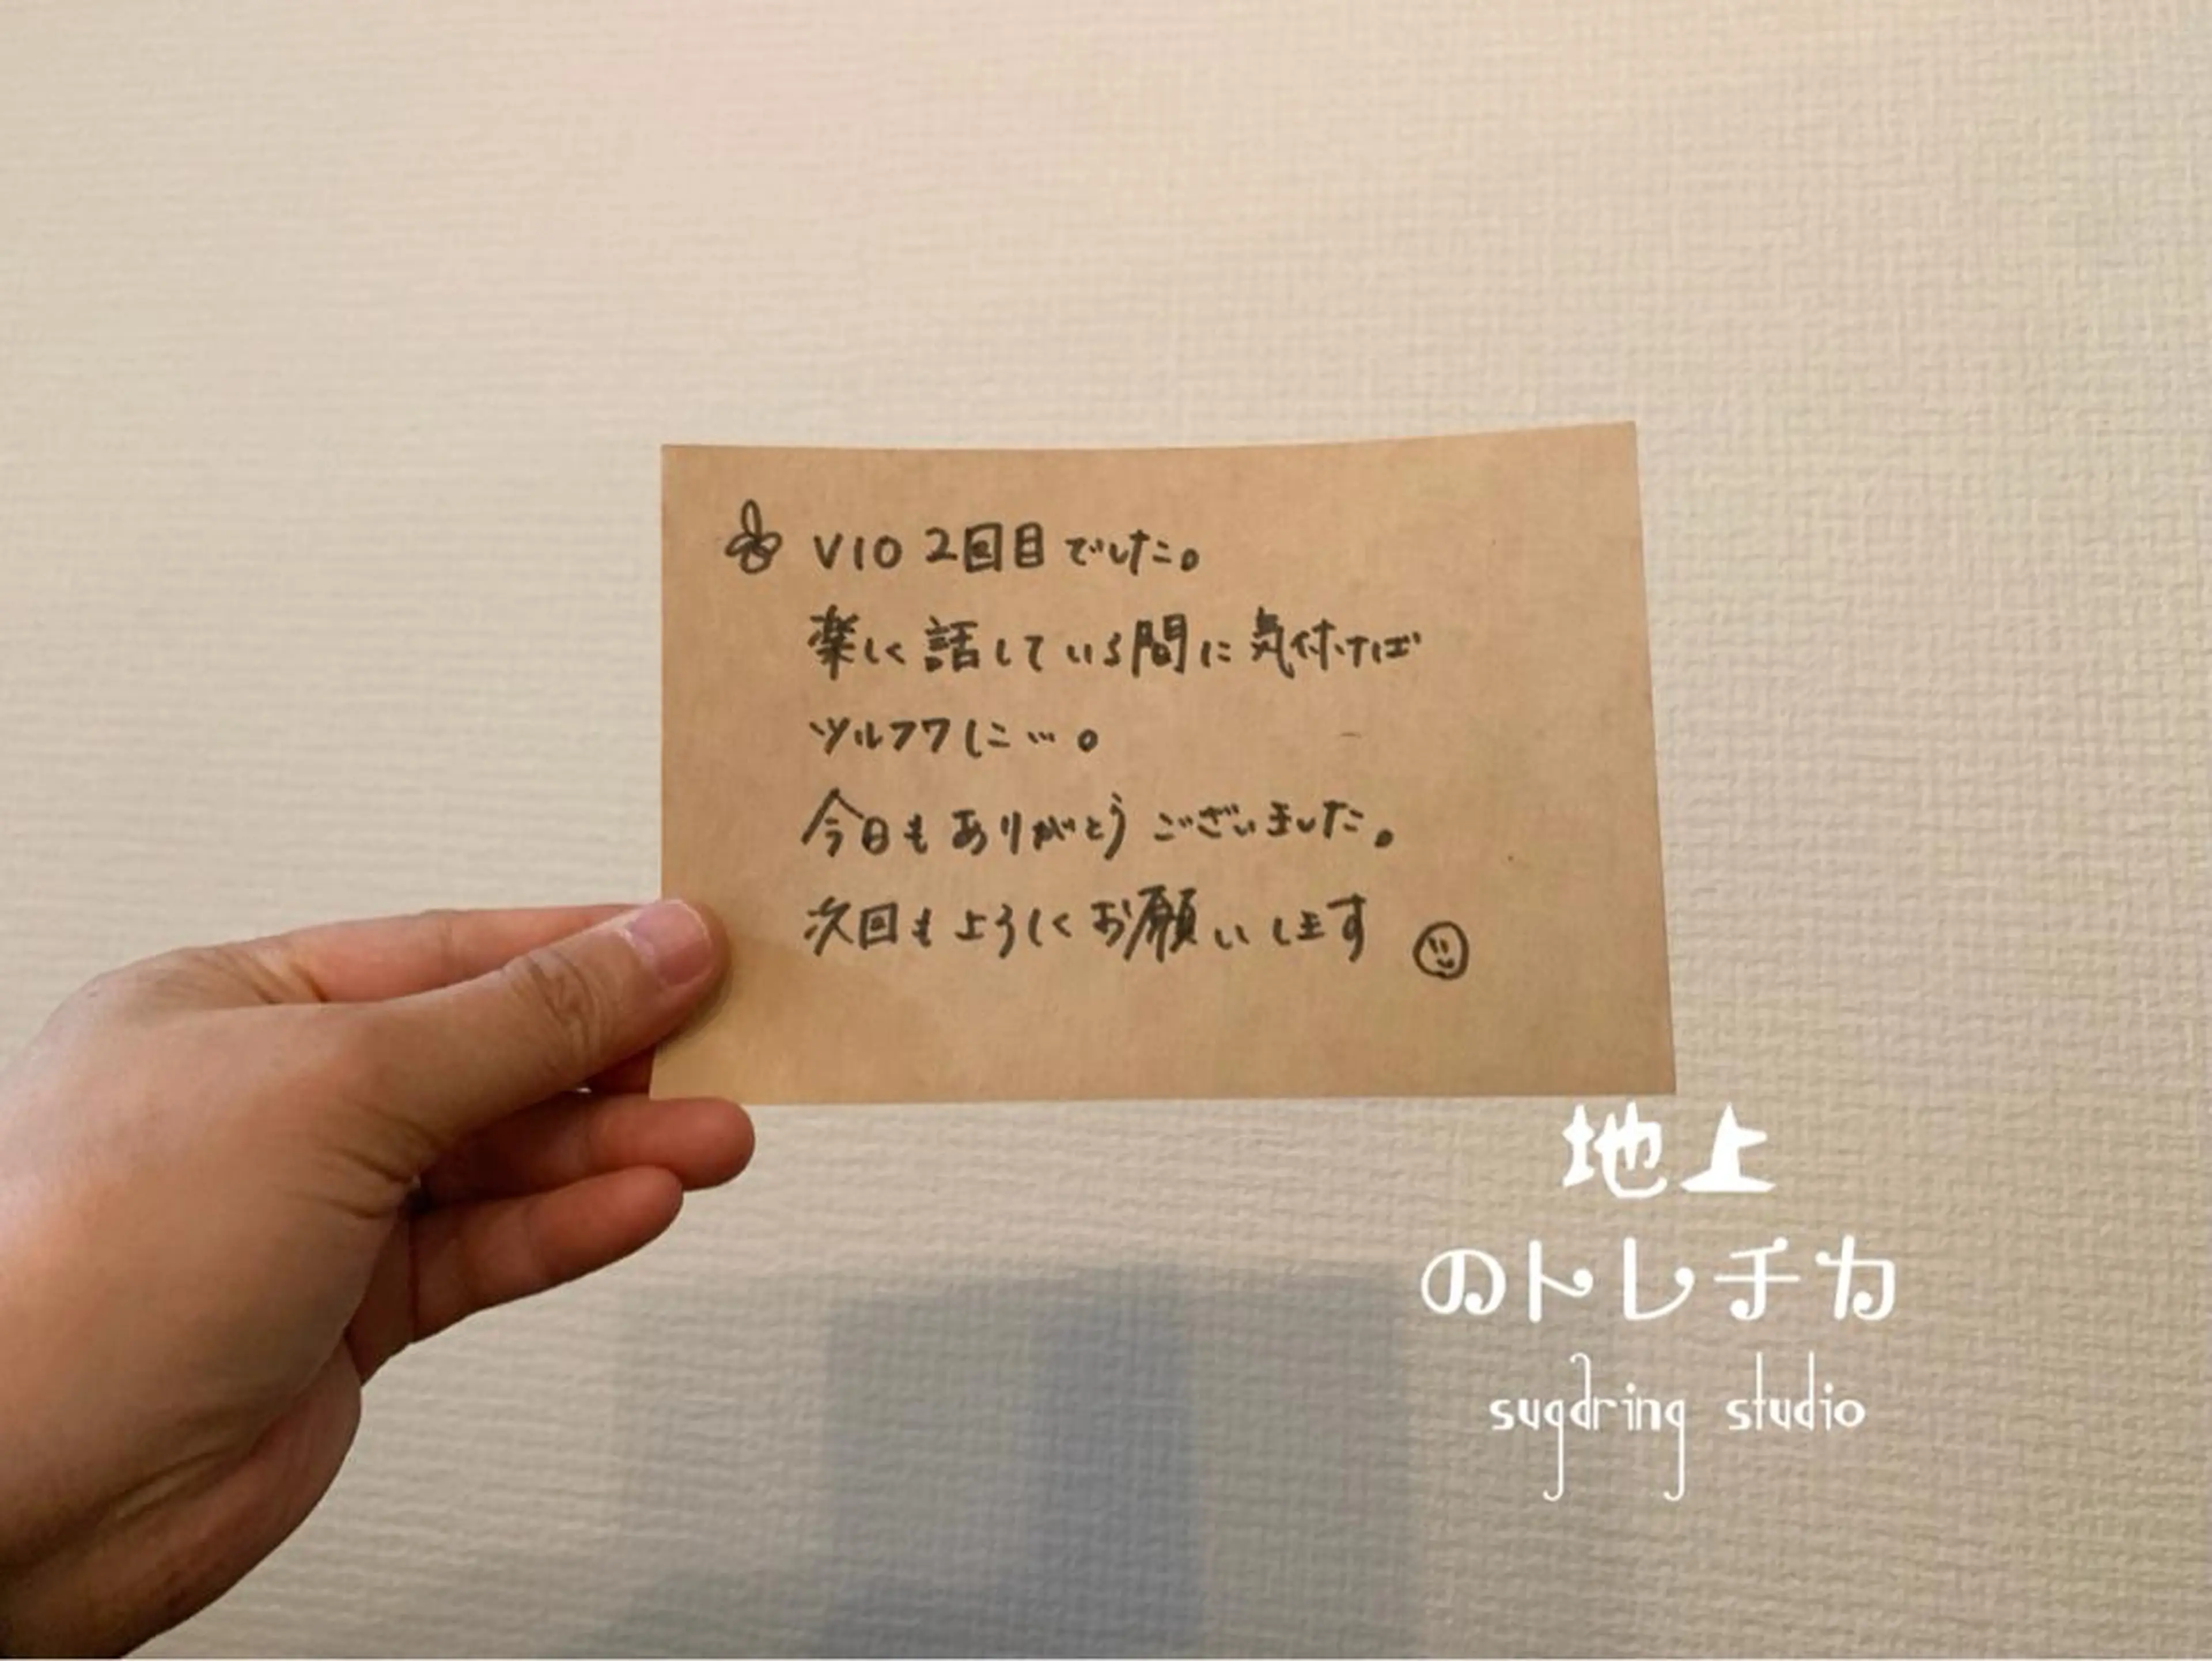 VIO 2回目でした。
楽しく話している間に気付けば
ツルフワに…。
今日もありがとうございました。
次回もよろしくお願いします
地上
のトレチカ
sugaring studio